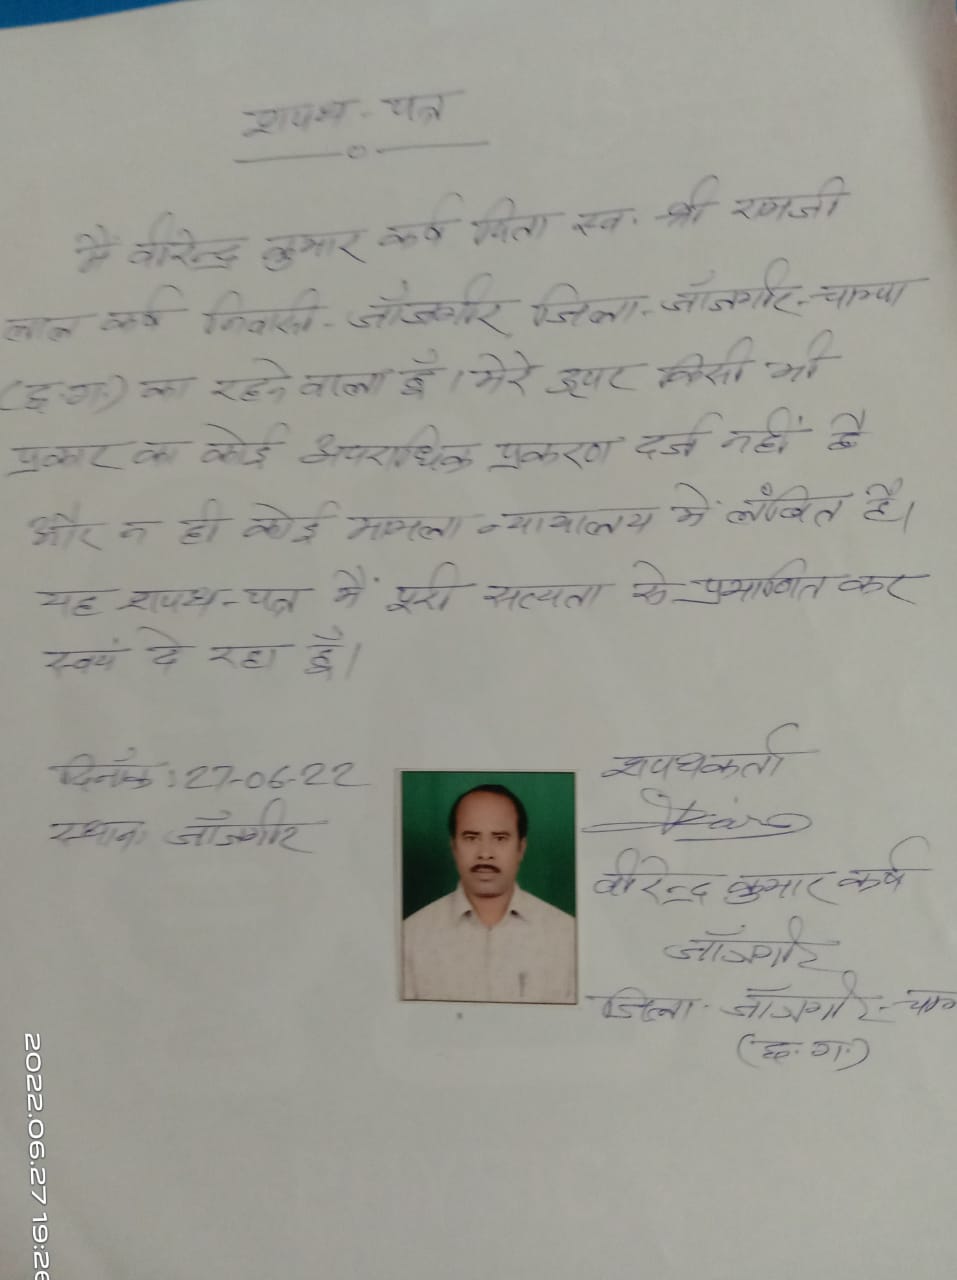 शपथ-पत्र
मैं वीरेन्द्र कुमार कर्ष पिता स्व. श्री रामजी
लाल कर्ष निवासी-जाँजगीर जिला-जाँजगीर-चाम्पा
(छ.ग.) का रहने वाला हूँ। मेरे उपर किसी भी
प्रकार का कोई अपराधिक प्रकरण दर्ज नहीं है
और न ही कोई मामला न्यायालय में लँबित है।
यह शपथ-पत्र मैं पूरी सत्यता से प्रमाणित कर
स्वयं दे रहा हूँ।
दिनाँक:27-06-22
स्थान: जाँजगीर
शपथकर्ता
वीरेन्द्र कुमार कर्ष
जाँजगीर
जिला-जाँजगीर-चाम्
(छ.ग.)
2022.06.27 19:26